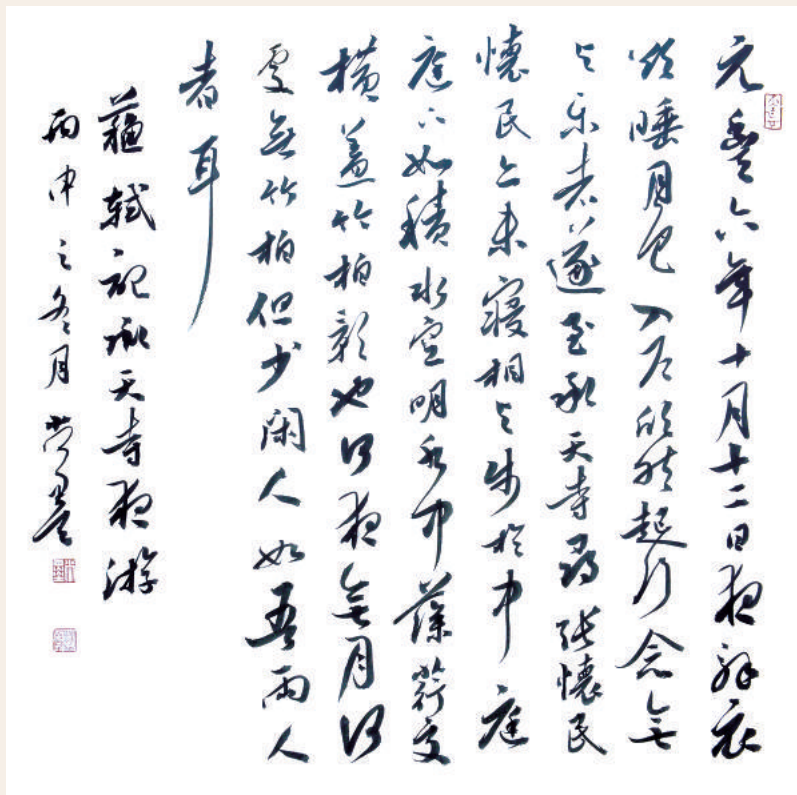 元豐六年十月十二日夜解衣
欲睡月色入户欣然起行念無
与乐者遂至承天寺尋张懷民
懷民亦未寢相与步於中庭
庭下如積水空明水中藻荇交
横蓋竹柏影也何夜無月何
處無竹柏但少閑人如吾兩人
者耳
蘇軾記承天寺夜游
丙申之冬月